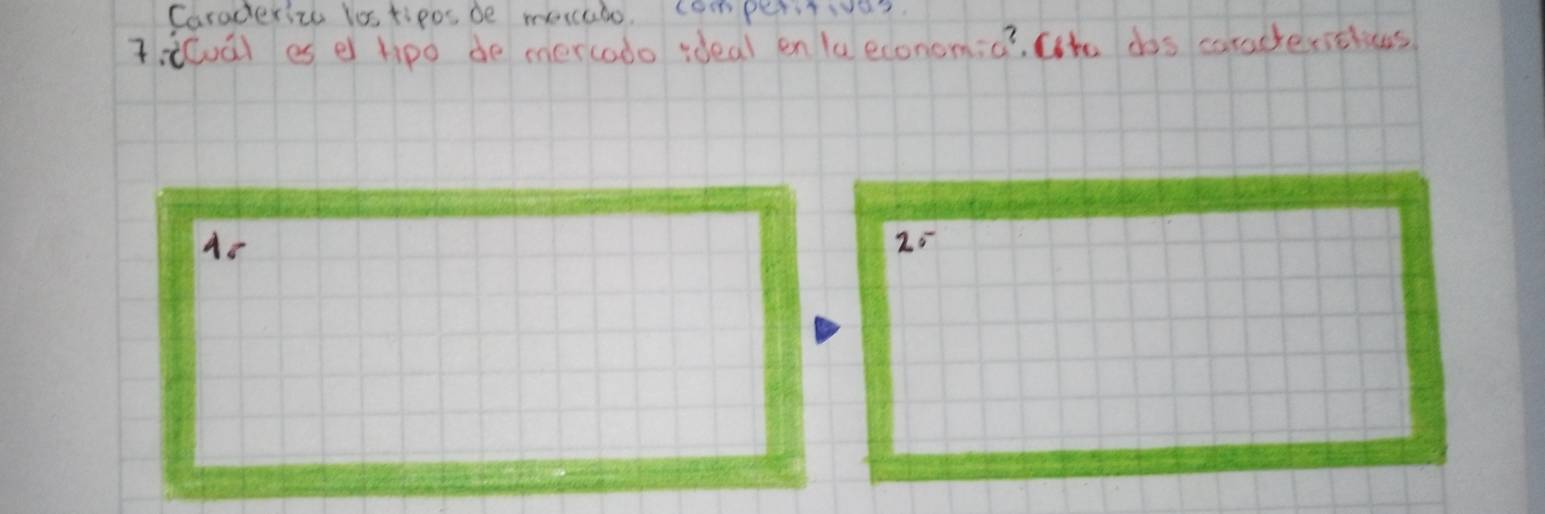 Caracteriza los tipos de mercado. competitivas.
7. ¿Cuál es el tipo de mercado ideal en la economía?. Cita dos características.
1.-
2.-